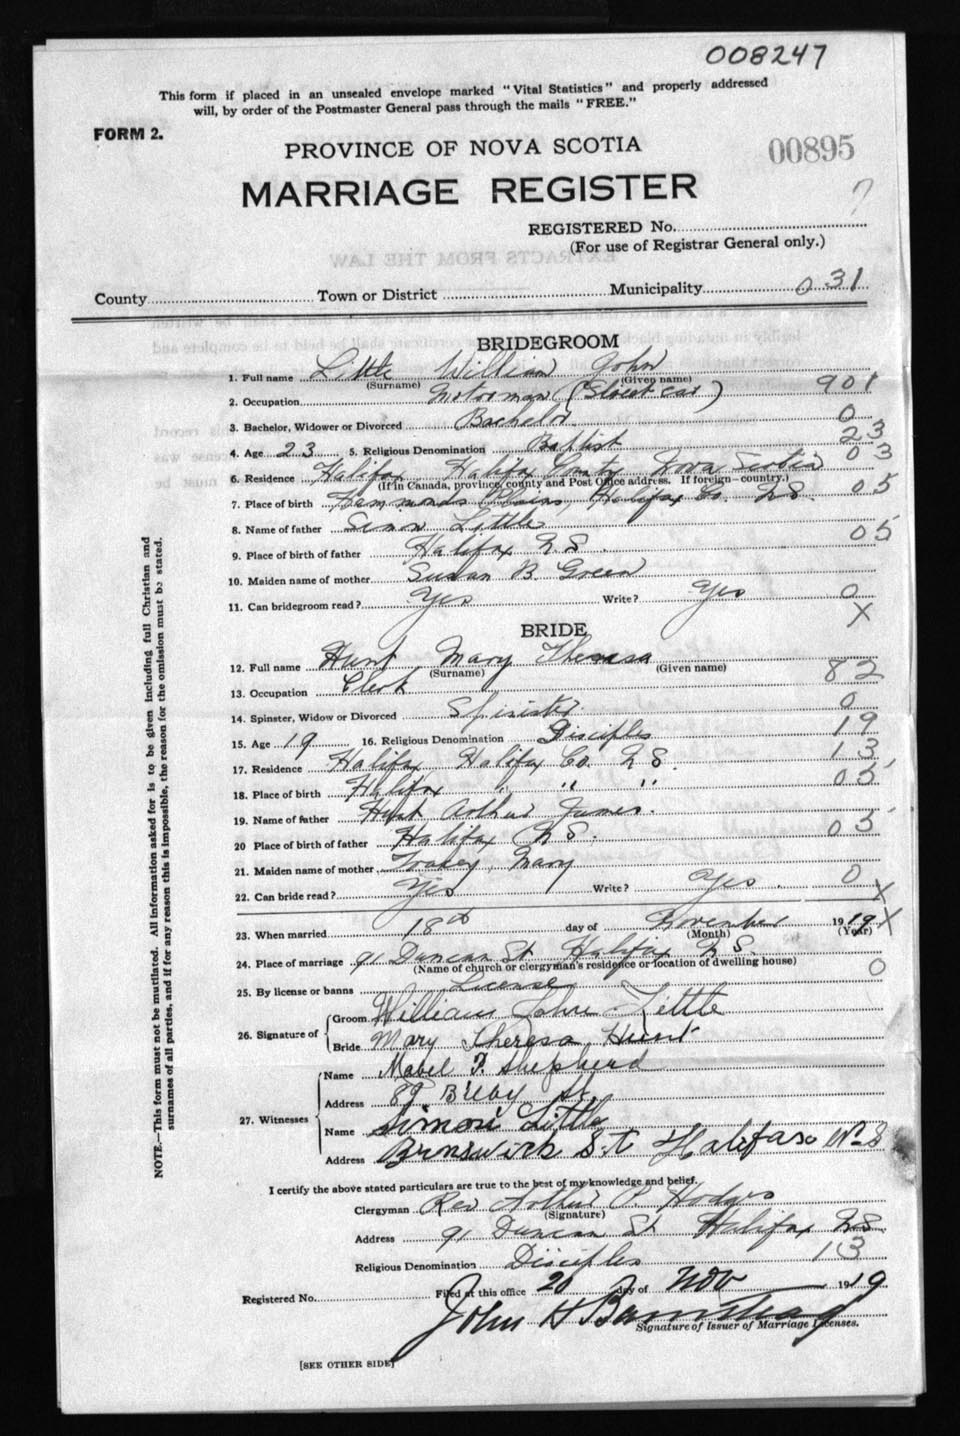 008247
This form if placed in an unsealed envelope marked "Vital Statistics" and properly addressed
will, by order of the Postmaster General pass through the mails "FREE."
FORM 2.
PROVINCE OF NOVA SCOTIA
00895
MARRIAGE REGISTER
7
REGISTERED No.
(For use of Registrar General only.)
County Town or District Municipality 031
BRIDEGROOM
1. Full name Little William John
(Surname) (Given name)
2. Occupation Motorman (Street car) 901
3. Bachelor, Widower or Divorced Bachelor 0
4. Age 23 5. Religious Denomination Baptist 23
6. Residence Halifax Halifax County Nova Scotia 03
(If in Canada, province, county and Post Office address. If foreign—country.)
7. Place of birth Hammonds Plains, Halifax Co. N.S. 05
8. Name of father Simon Little
9. Place of birth of father Halifax N.S. 05
10. Maiden name of mother Susan B. Green
11. Can bridegroom read? Yes Write? Yes 0
X
BRIDE
12. Full name Hunt, Mary Theresa
(Surname) (Given name)
13. Occupation Clerk 82
14. Spinster, Widow or Divorced Spinster 0
15. Age 19 16. Religious Denomination Disciples 19
17. Residence Halifax Halifax Co. N.S. 13
18. Place of birth Halifax " " " 05
19. Name of father Hunt Arthur James.
20 Place of birth of father Halifax N.S. 05
21. Maiden name of mother Mary
22. Can bride read? Yes Write? Yes. 0
X
23. When married 18th day of November 1919 X
(Month) (Year)
24. Place of marriage 91 Duncan St Halifax N.S.
(Name of church or clergyman's residence or location of dwelling house) 0
25. By license or banns License
26. Signature of Groom William John Little
Bride Mary Theresa Hunt
27. Witnesses Name Mabel F. Shepherd
Address 89 Bilby St.
Name Simon Little
Address Brunswick St Halifax N.S
I certify the above stated particulars are true to the best of my knowledge and belief.
Clergyman Rev Arthur P. Hodges
(Signature)
Address 91 Duncan St Halifax N.S.
Religious Denomination Disciples 13
Registered No. Filed at this office 20 day of Nov 1919
John H Barnstead
Signature of Issuer of Marriage Licenses.
[SEE OTHER SIDE]
NOTE.—This form must not be mutilated. All information asked for is to be given including full Christian and
surnames of all parties, and if for any reason this is impossible, the reason for the omission must be stated.